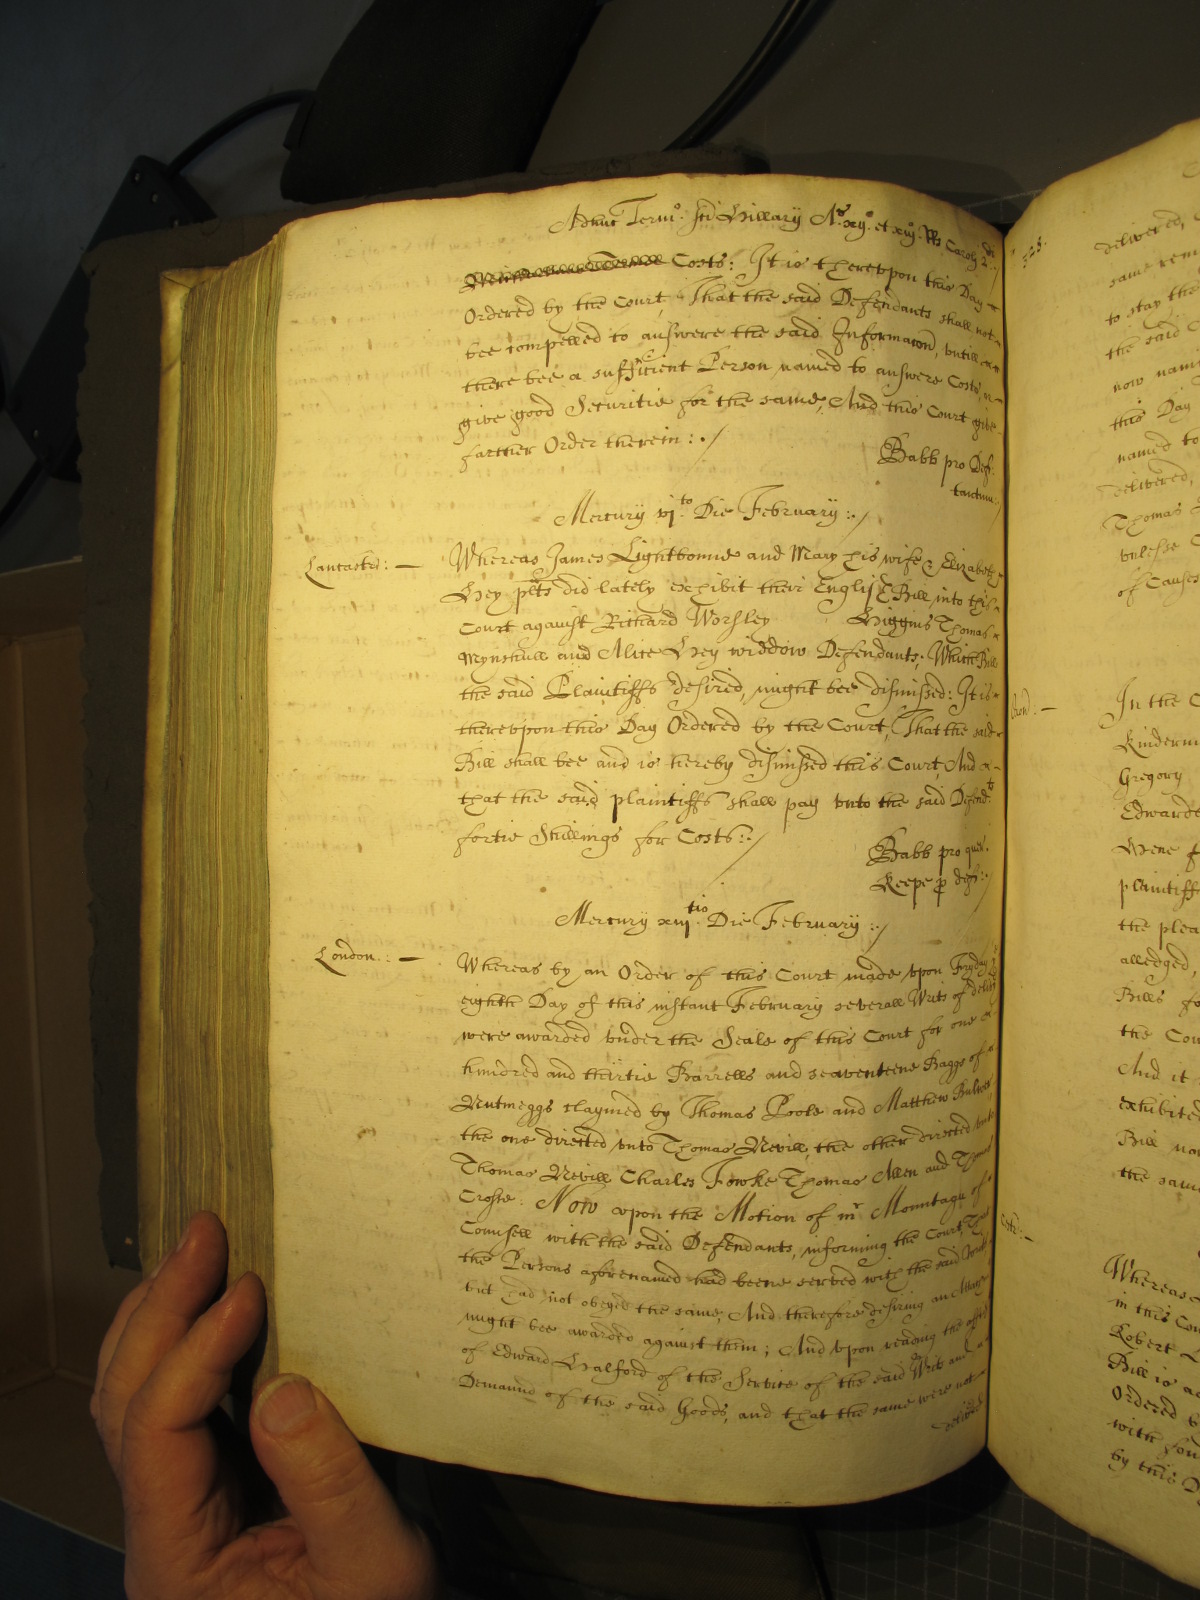 Adhuc Term: Sci Hillary A:s xijo. et xiijo. Rs Caroli 2di:/
Costs: It is thereupon this Day
Ordered by the Court, That the said Defendants shall not
bee compelled to answere the said Informacon, vntill
there bee a sufficient Person named to answere Costs, or
give good Securitie for the same, And this Court give
farther Order therein:./
Babb pro Deft.
Mercury vjto. Die February:./
Lancastr:. Whereas James Lightbowne and Mary his wife & Elizabeth
Hey plts did lately exhibit their English Bill into this
Court against Richard Worsley Higgins Thomas
Mynshull and Alice Hey widdow Defendants; Which Bill
the said Plaintiffs desired, might bee dismissed: It is
thereupon this Day Ordered by the Court, That the said
Bill shall bee and is hereby dismissed this Court, And
that the said plaintiffs shall pay vnto the said Defendts
fortie Shillings for Costs:./
Babb pro quer.
Keepe p deft:./
Mercury xiijtio. Die February:./
London:. Whereas by an Order of this Court made vpon Fryday
eighth Day of this instant February severall Writs of
were awarded vnder the Seale of this Court for one
hundred and thirtie Barrells and seaventeene Baggs of
Nutmeggs claymed by Thomas Poole and Matthew
the one directed vnto Thomas Nevill, the other directed vnto
Thomas Nevill Charles Fowke Thomas Allen and Thomas
Crosse: Now vpon the Motion of mr Mountagu of
Counsell with the said Defendants, informing the Court, That
the Persons aforenamed had beene served with the said Writs
but had not obeyed the same, And therefore desiring an
might bee awarded against them; And vpon reading the
of Edward Halford of the Service of the said Writs and
Demannd of the said Goods, and that the same were not
delivered
528.
delivered,
same rem
to stay the
the said
now nam
this Day
named to
delivered,
Thomas
vnlesse
of Causes
In the C
Kinderm
Gregory
Edwarde
plaintiff
the plea
alledged,
Bills fo
the Cou
And it
exhibited
Bill no
the same
Whereas
in this Cou
Robert
Bill is a
Ordered
with
by this D